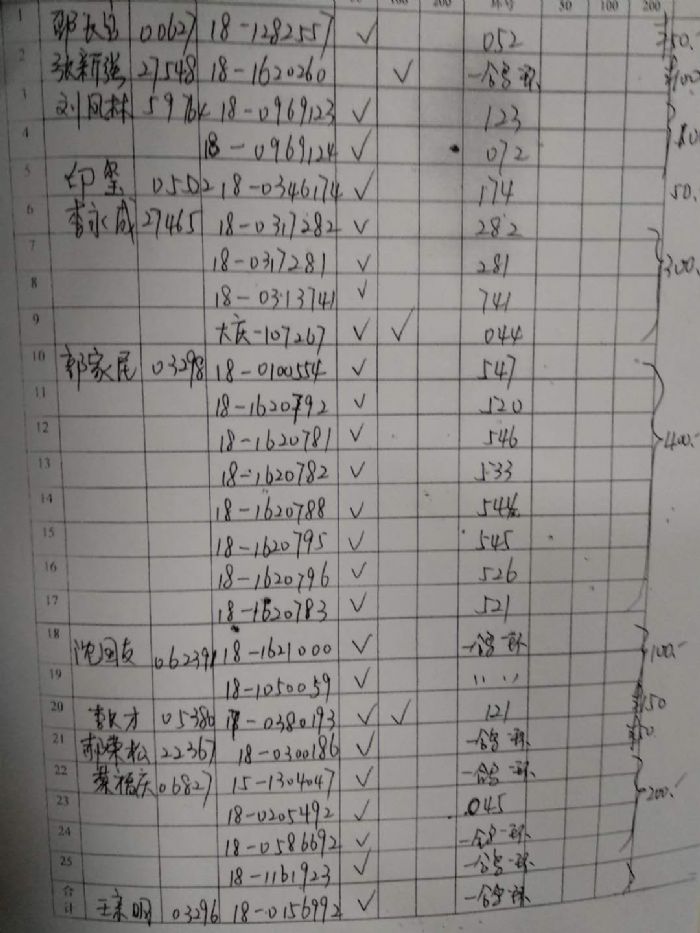 环号 50 100 200
1 邵长宝 00627 18-1282557 ✓ 052 ¥50.-
2 张新强 27548 18-1620260 ✓ 一合鸟一环 ¥100
3 刘凤林 59764 18-0969123 ✓ 123
4 18-0969124 ✓ 072
5 印玺 05502 18-0346174 ✓ 174 50.
6 李永成 27465 18-0317282 ✓ 282
7 18-0317281 ✓ 281 300.
8 18-0313741 ✓ 741
9 大庆-107267 ✓ ✓ 044
10 郭家尾 03298 18-0100554 ✓ 547
11 18-1620792 ✓ 520
12 18-1620781 ✓ 546 400.-
13 18-1620782 ✓ 533
14 18-1620788 ✓
15 18-1620795 ✓ 545
16 18-1620796 ✓ 526
17 18-1620783 ✓ 521
18 沈国友 18-1621000 ✓ 一合鸟一环 100.-
19 18-1050059 ✓ 〃 〃
20 李长才 05380 18-0380193 ✓ ✓ 121 ¥150
21 郝荣松 22367 18-0300186 ✓ 一合鸟一环 ¥50.
22 蔡福庆 06827 15-1304047 ✓ 一合鸟一环
23 18-0205492 ✓ 045 200.-
24 18-0586692 ✓ 一合鸟一环
25 18-1161923 ✓ 一合鸟一环
合计 王亲明 03296 18-0156992 ✓ 一合鸟一环